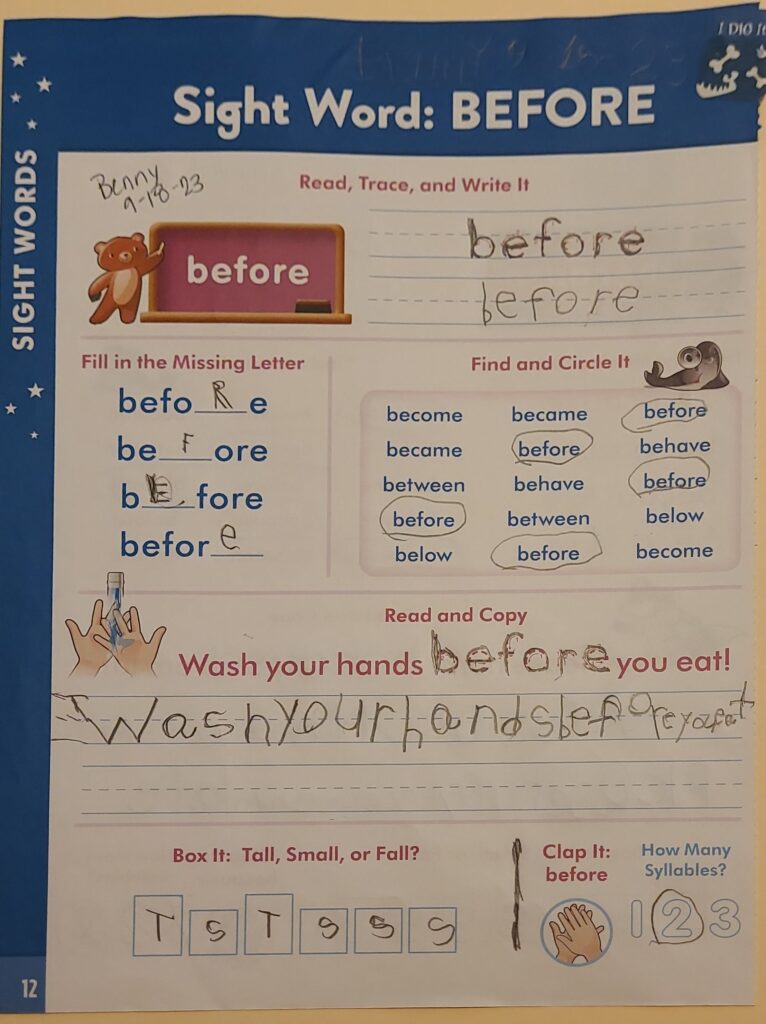 I DIG IT
Sight Word: BEFORE
SIGHT WORDS
Benny
9-18-23
Read, Trace, and Write It
before
before
before
Fill in the Missing Letter
befoRe
beFore
bEfore
before
Find and Circle It
become became before
became before behave
between behave before
before between below
below before become
Read and Copy
Wash your hands before you eat!
Wash your hands before you eat
Box It: Tall, Small, or Fall?
T S T S S S
Clap It:
before
How Many
Syllables?
1 2 3
12